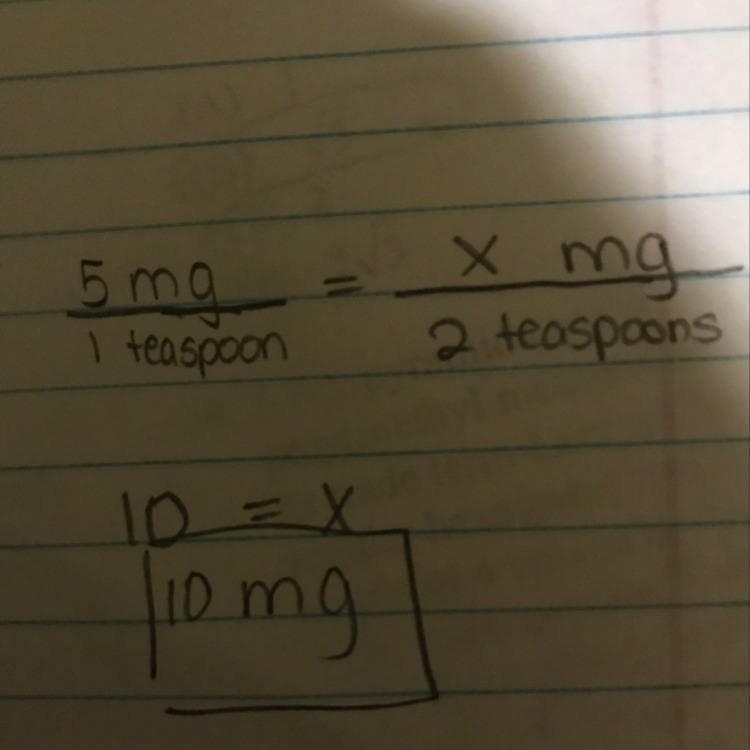 5 mg = x mg
1 teaspoon 2 teaspoons
10 = x
10 mg